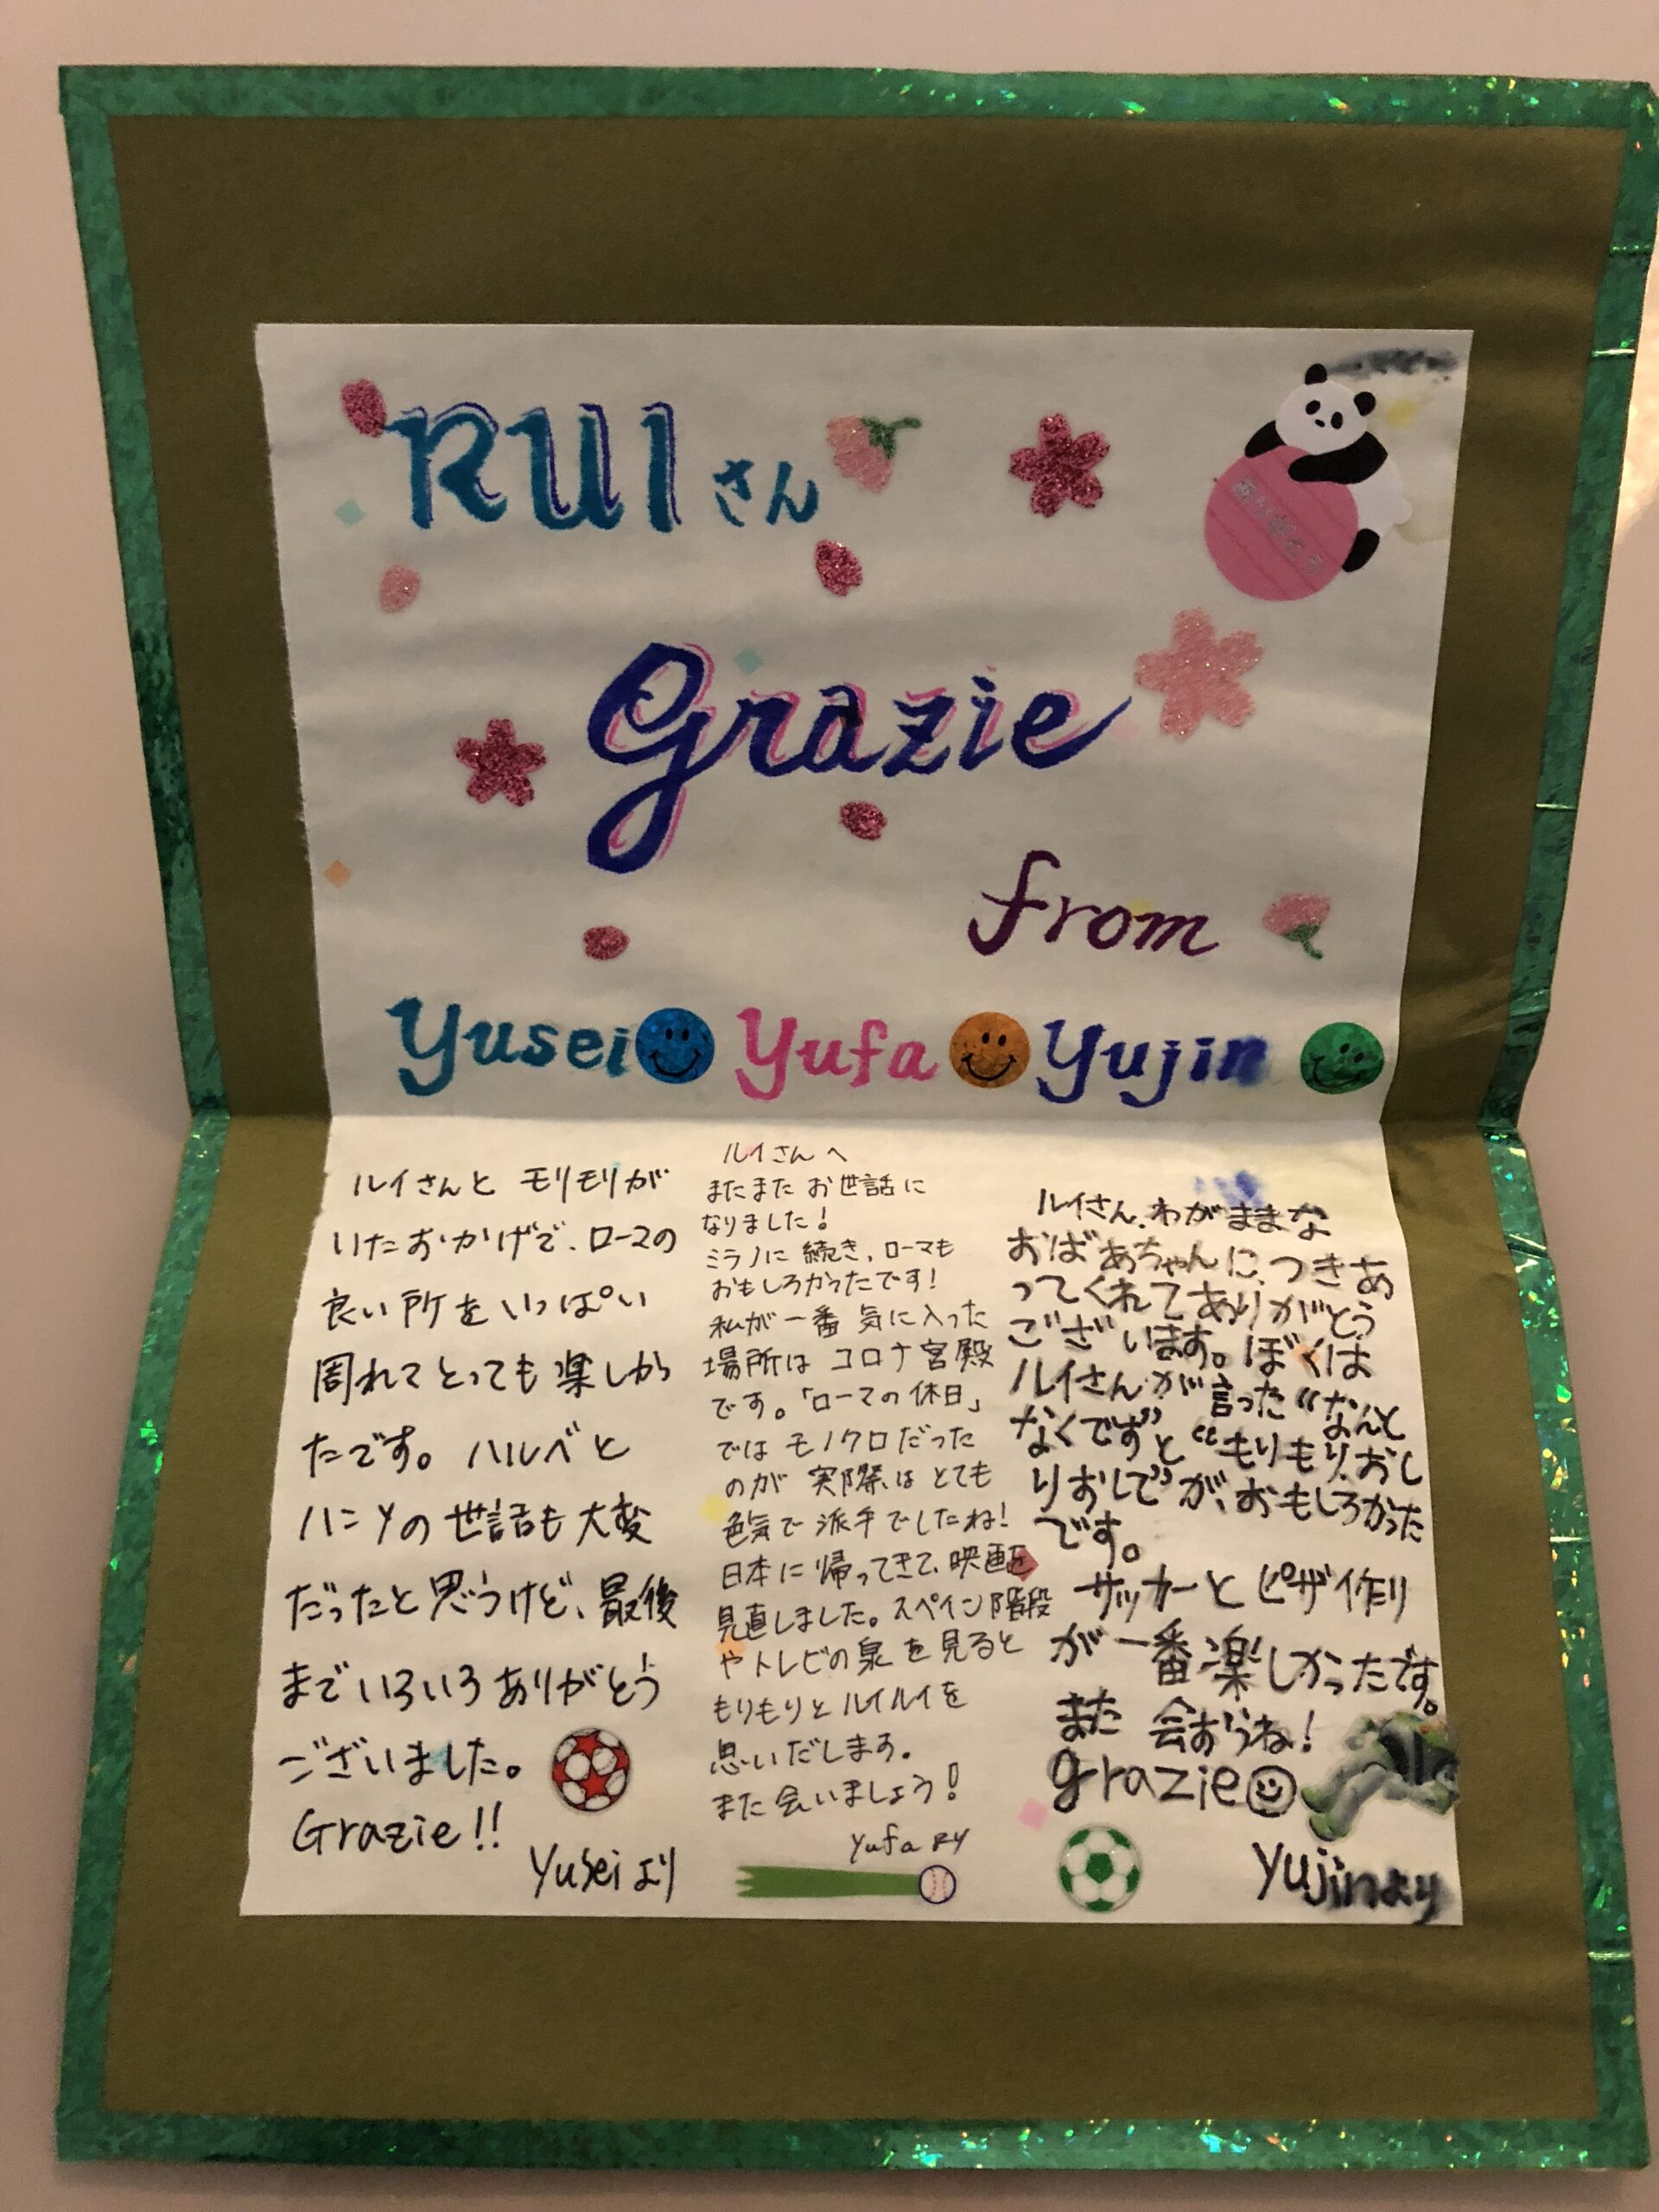 RUI さん
ありがとう
Grazie
from
Yusei Yufa Yujin
ルイさんと モリモリが
いたおかげで、ローマの
良い所をいっぱい
周れてとっても楽しか
たです。ハルベと
ハニYの世話も大変
だったと思うけど、最後
までいろいろありがとう
ございました。
Grazie!!
Yuseiより
ルイさんへ
またまたお世話に
なりました!
ミラノに続き、ローマも
おもしろかったです!
私が一番気に入った
場所はコロナ宮殿
です。「ローマの休日」
ではモノクロだった
のが 実際はとても
色気で派手でしたね!
日本に帰ってきて、映画を
見直しました。スペイン階段
やトレビの泉を見ると
もりもりとルイルイを
思いだします。
また会いましょう!
Yufaより
ルイさん、わがままな
おばあちゃんに、つきあ
ってくれてありがとう
ございます。ぼくは
ルイさんが言った“なんと
なくです”と“もりもり、おし
りおして”が、おもしろかった
です。
サッカーとピザ作り
が一番楽しかったです。
また 会おうね!
grazie
Yujinより